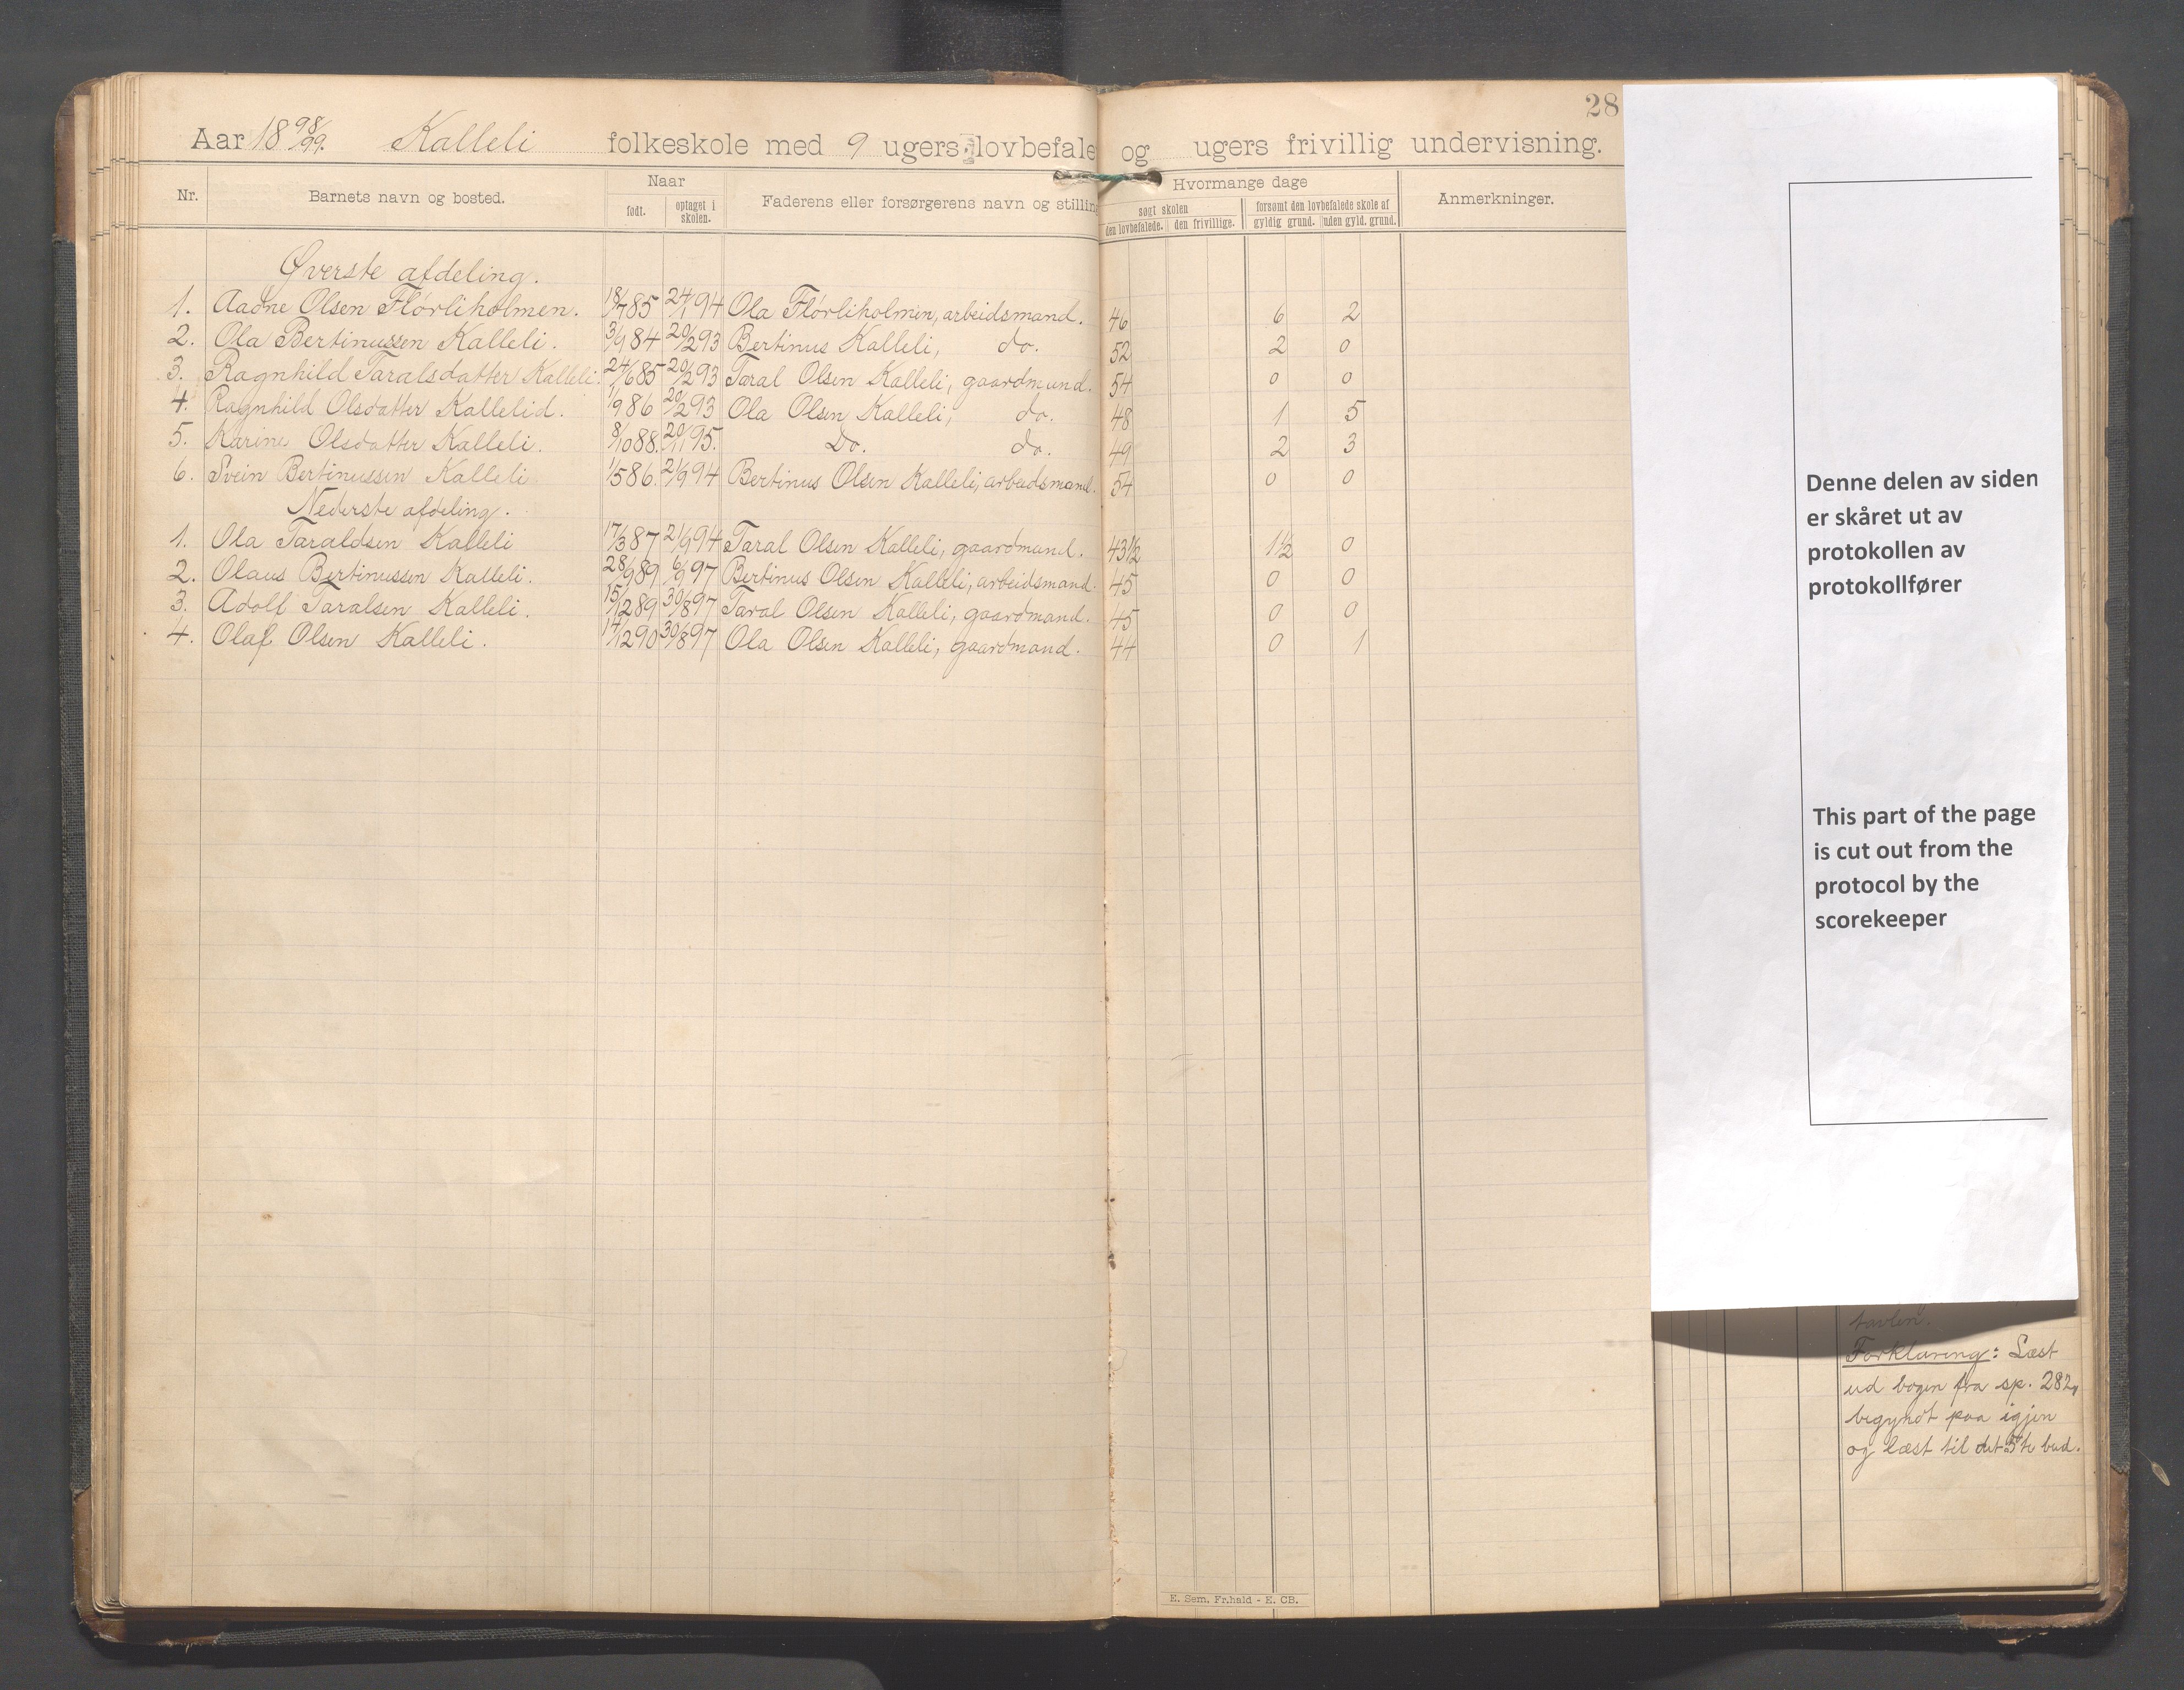 28
Aar 18 98/99. Kalleli folkeskole med 9 ugers lovbefale og ugers frivillig undervisning.
Nr. Barnets navn og bosted. Naar født. optaget i skolen. Faderens eller forsørgerens navn og stilling Hvormange dage søgt skolen den lovbefalede. den frivillige. forsømt den lovbefalede skole af gyldig grund. uden gyld. grund. Anmerkninger.
Øverste afdeling.
1. Aadne Olsen Flørliholmen. 18/7 85 24/1 94 Ola Flørliholmen, arbeidsmand. 46 6 2
2. Ola Bertinussen Kalleli. 3/9 84 20/2 93 Bertinus Kalleli, do. 52 2 0
3. Ragnhild Taralsdatter Kalleli. 24/6 85 20/2 93 Taral Olsen Kalleli, gaardmand. 54 0 0
4. Ragnhild Olsdatter Kallelid. 1/9 86 20/2 93 Ola Olsen Kalleli, do. 48 1 5
5. Karine Olsdatter Kalleli. 8/10 88. 20/11 95. Do. do. 49 2 3
6. Svein Bertinussen Kalleli 1/5 86. 21/9 94 Bertinus Olsen Kalleli, arbeidsmand. 54 0 0
Nederste afdeling.
1. Ola Taraldsen Kalleli 17/3 87 21/9 94 Taral Olsen Kalleli, gaardmand. 43 1/2 1 1/2 0
2. Olaus Bertinussen Kalleli. 28/9 89 6/9 97 Bertinus Olsen Kalleli, arbeidsmand. 45 0 0
3. Adolf Taralsen Kalleli. 15/12 89 30/8 97 Taral Olsen Kalleli, gaardmand. 45 0 0
4. Olaf Olsen Kalleli. 14/12 90 30/8 97 Ola Olsen Kalleli, gaardmand. 44 0 1
E. Sem. Fr.hald - E. CB.
Denne delen av siden
er skåret ut av
protokollen av
protokollfører
This part of the page
is cut out from the
protocol by the
scorekeeper
tavlen.
Forklaring: Læst
ud bogen fra sp. 282,
begyndt paa igjen
og læst til det 5te bud.